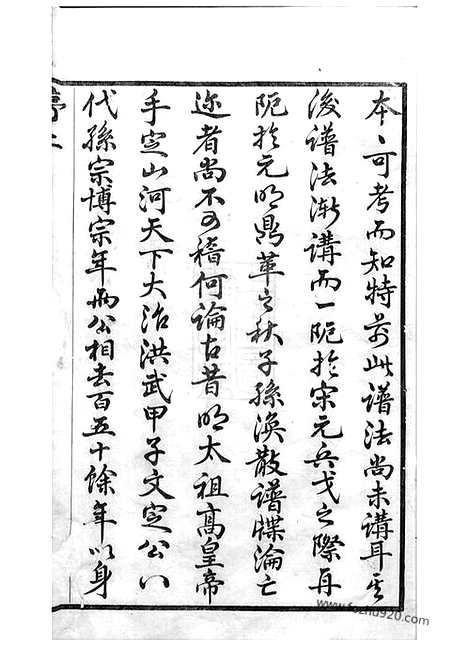 本〻可考而知特前此譜法尚未講耳其
後譜法漸講而一阨於宋元兵戈之際再
阨於元明鼎革之秋子孫渙散譜牒淪亡
邇者尚不可稽何論古昔明太祖高皇帝
手定山河天下大治洪武甲子文定公八
代孫宗博宗年兩公相去百五十餘年以身
序二
www.fozhu920.com